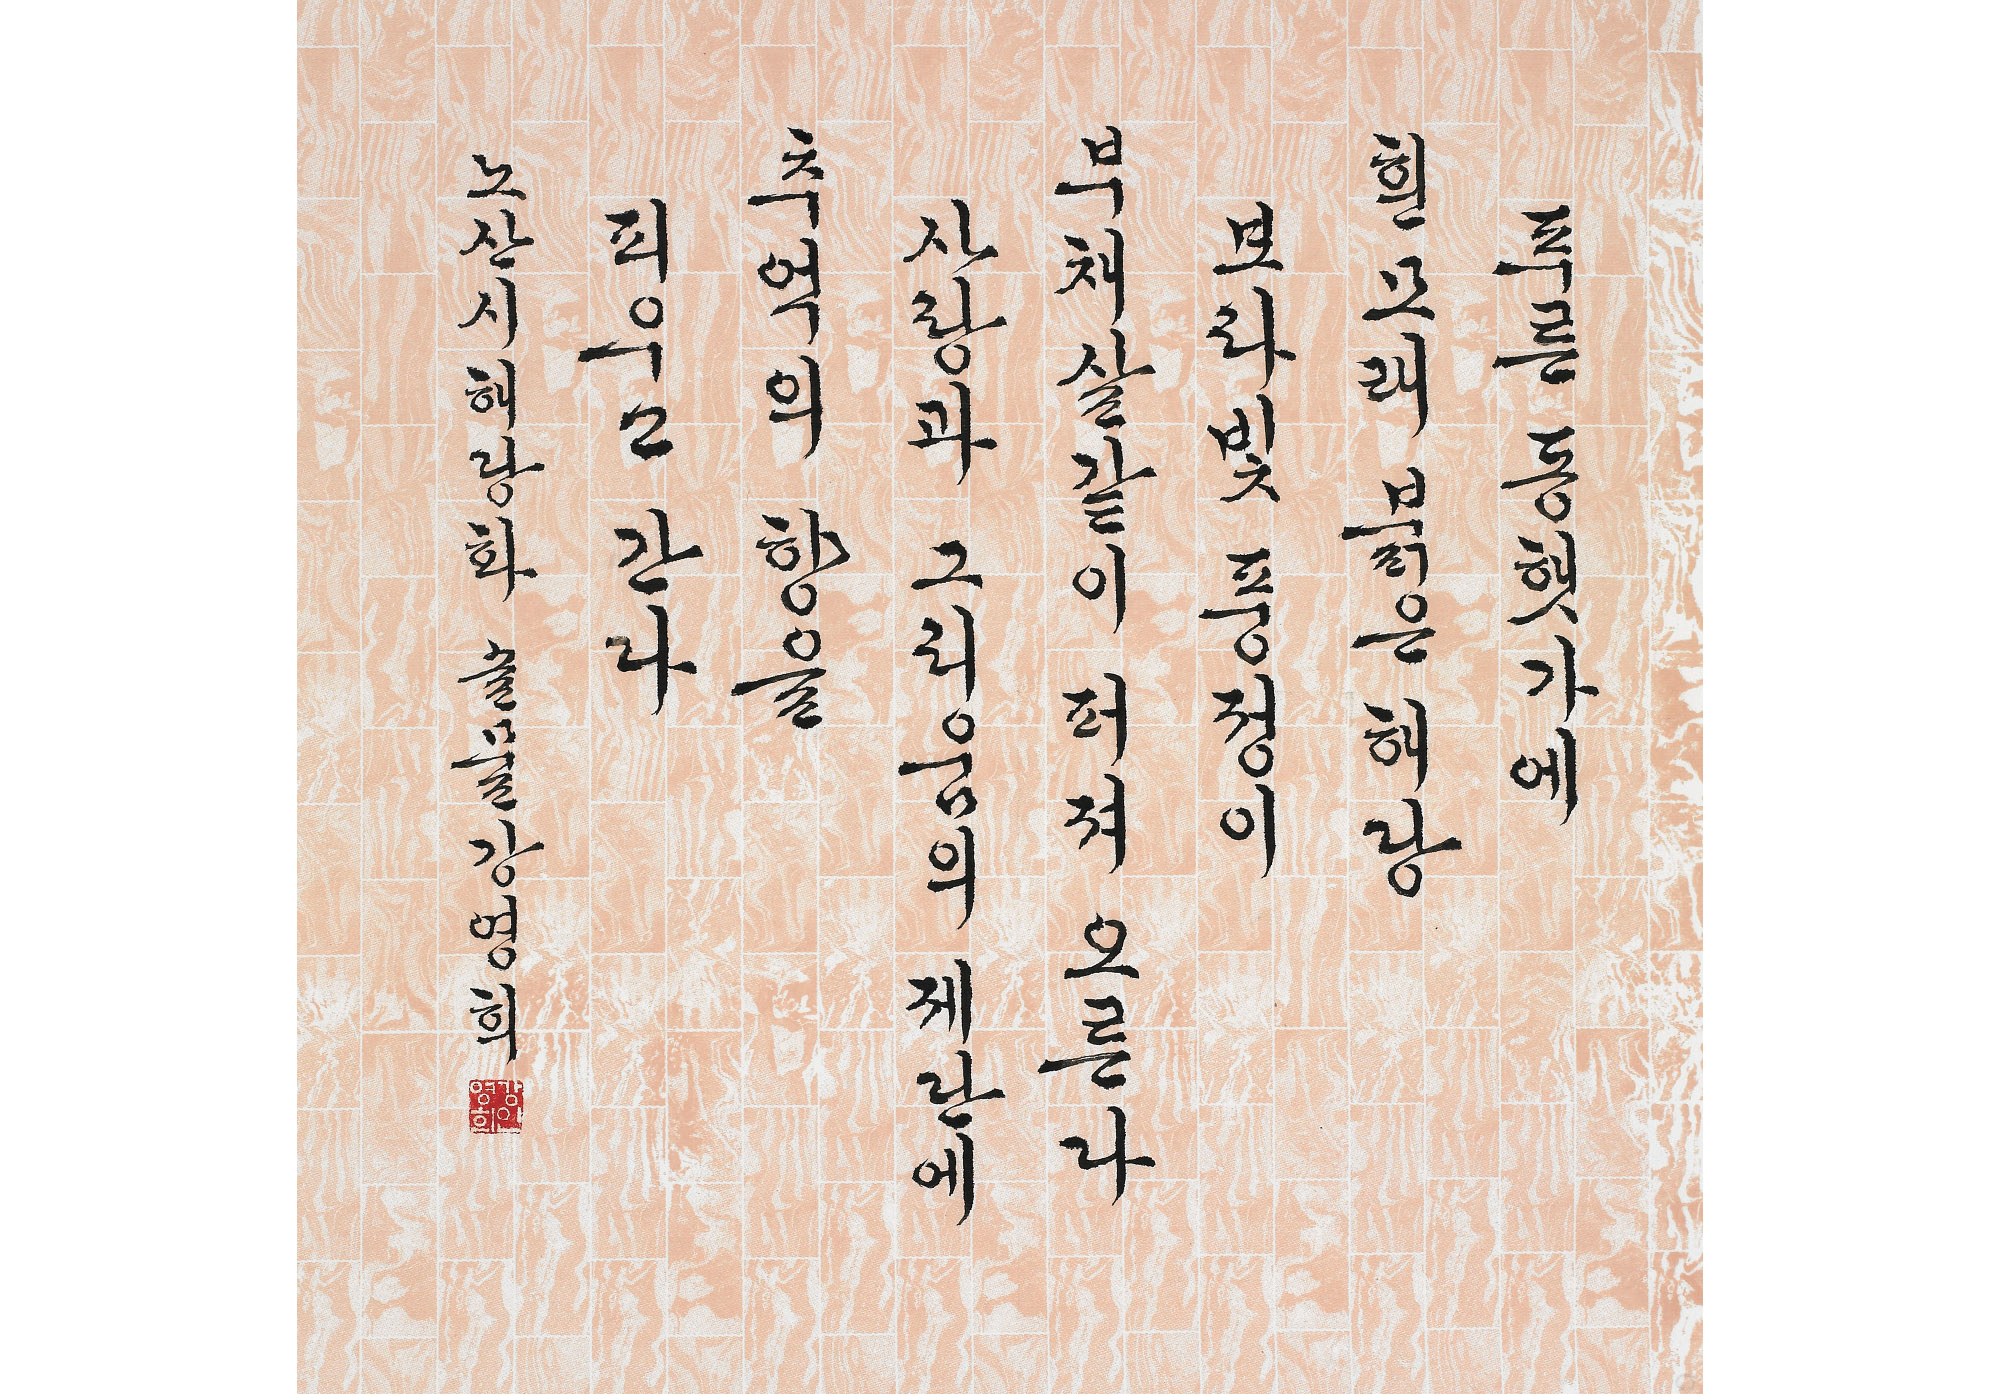 푸른 동햇가에
흰 모래 붉은 해당
보라빛 풍정이
부채살같이 퍼져 오른다
사랑과 그리움의 제단에
추억의 향을
피우고 간다
노산시 해당화 강영희
강인
영희